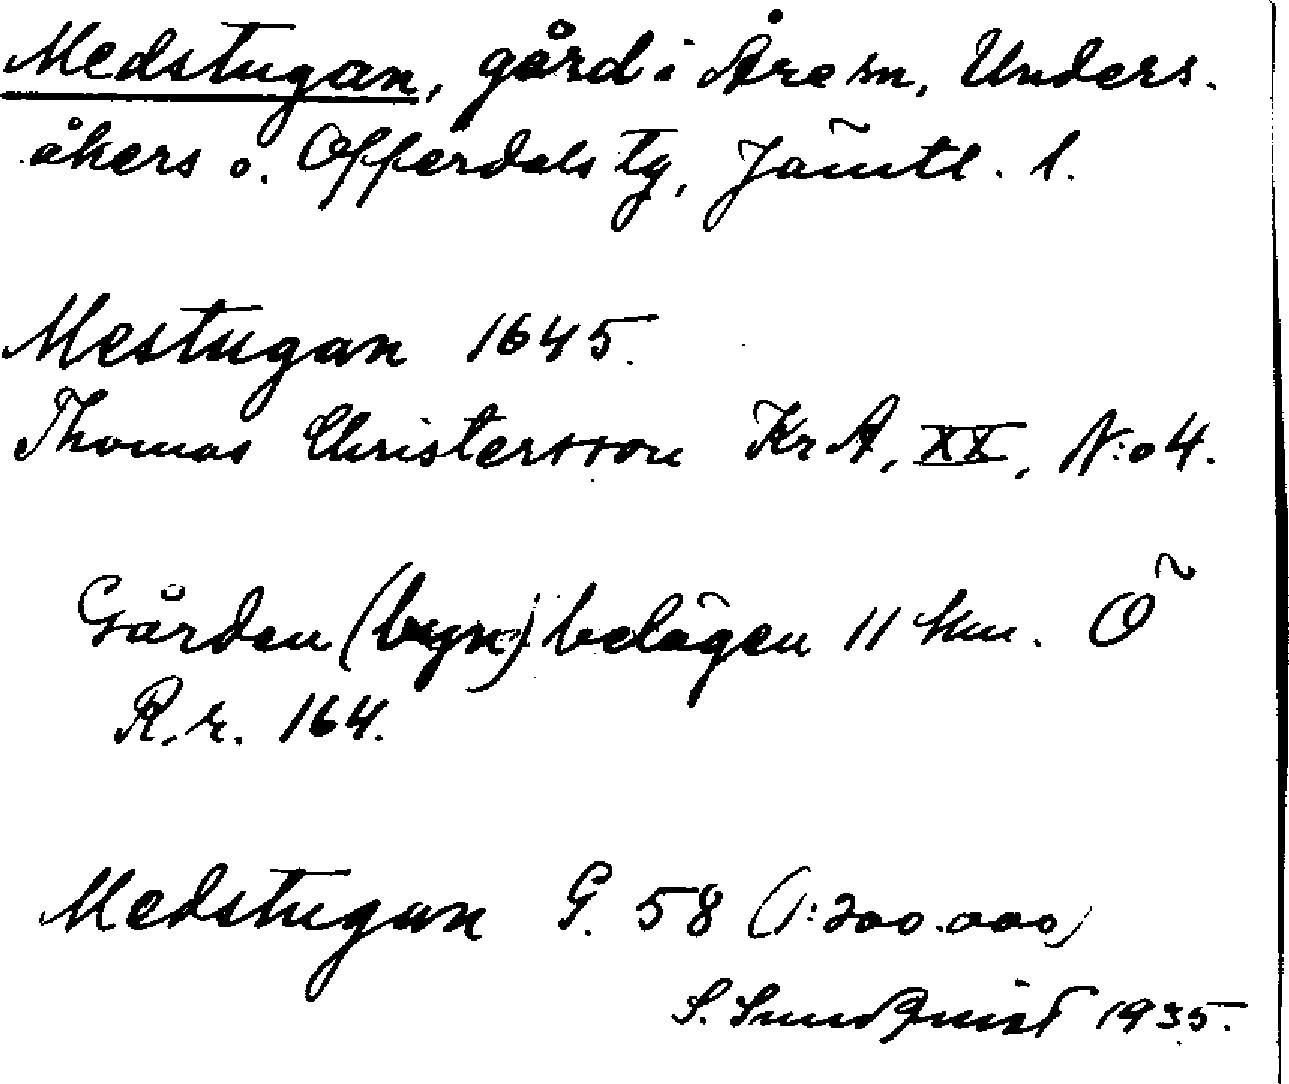 Medstugan, gård i Åre sn, Unders-
åkers o. Offerdals tg, Jämtl. l.
Mestugan 1645.
Thomas Christersson KrA, XX, N:o 4.
Gården (byn) belägen 11 km. Ö
R.r. 164.
Medstugan G. 58 (1:200.000)
S. Sundqvist 1935.